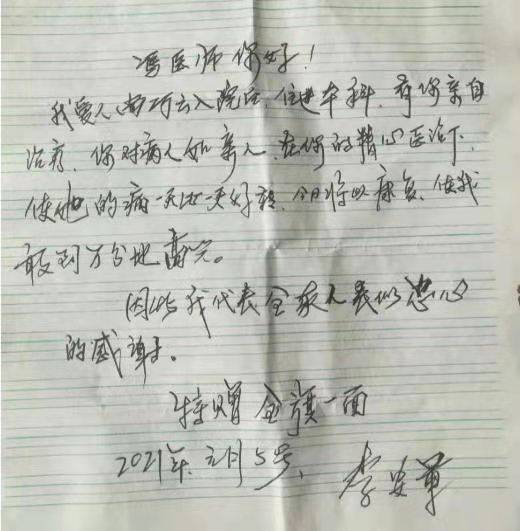 冯医师你好！
我爱人南巧云入院后，住进本科，有你亲自
治疗，你对病人如亲人，在你的精心医治下，
使她的病一天比一天好转，今日将以康复，使我
敢到万分地高兴。
因此我代表全家人表似忠心
的感谢。
特赠金旗一面
2021年元月5号，李安军